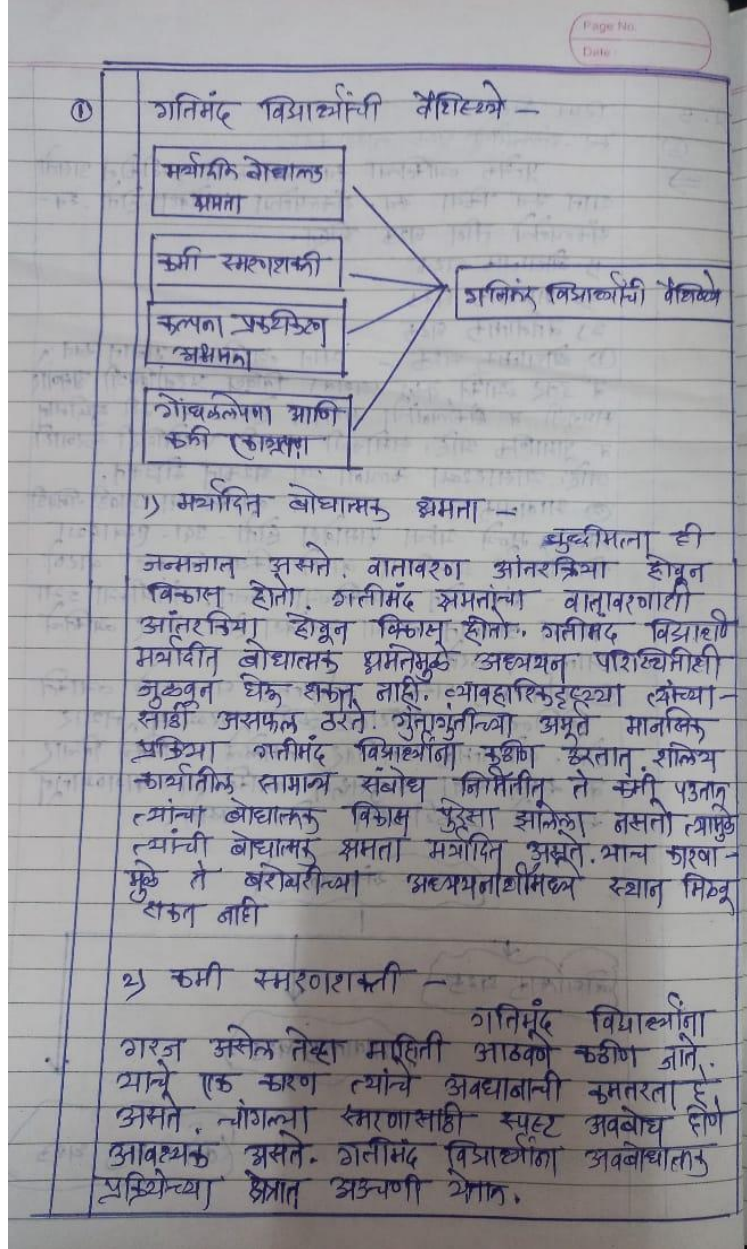 Page No.
Date
① गतिमंद विद्यार्थ्यांची वैशिष्ट्ये -
मर्यादित बोधात्मक
क्षमता
कमी स्मरणशक्ती
कल्पना प्रकटीकरण
अक्षमता
गतिमंद विद्यार्थ्यांची वैशिष्ट्ये
आणि
कमी
1) मर्यादित बोधात्मक क्षमता -
बुध्दीमत्ता ही
जन्मजात असते वातावरण आंतरक्रिया होवून
विकास होतो. गतीमंद क्षमतांचा वातावरणाशी
आंतरक्रिया होवून विकास होतो. गतीमंद विद्यार्थी
मर्यादीत बोधात्मक क्षमतेमुळे अध्ययन परिस्थितीशी
जुळवून घेऊ शकत नाही. व्यावहारिकदृष्ट्या त्यांच्या-
साठी असफल ठरते गुंतागुंतीच्या अमूर्त मानसिक
प्रक्रिया गतीमंद विद्यार्थ्यांना कठीण ठरतात. शालेय
कार्यातील सामान्य संबोध निर्मितीत ते कमी पडतात
त्यांचा बोधात्मक विकास पुरेसा झालेला नसतो त्यामुळे
त्यांची बोधात्मक क्षमता मर्यादित असते. याच कारणा-
मुळे ते बरोबरीच्या स्थान मिळवू
शकत नाही
2) कमी स्मरणशक्ती -
गतिमंद विद्यार्थ्यांना
गरज असेल तेव्हा माहिती आठवणे कठीण जाते.
याचे एक कारण त्यांचे अवधानाची कमतरता हे
असते. चांगल्या स्मरणासाठी स्पष्ट अवबोध होणे
आवश्यक असते. गतीमंद विद्यार्थ्यांना अवबोधात्मक
प्रक्रियेच्या क्षेत्रात अडचणी येतात.